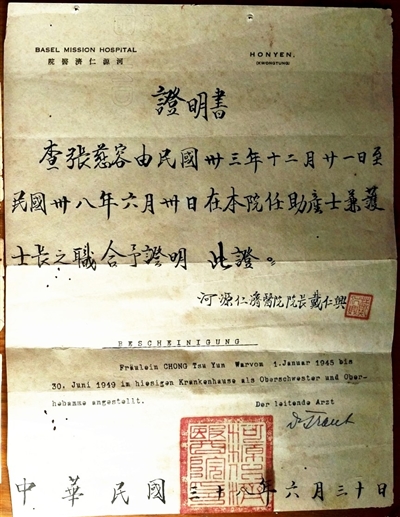 BASEL MISSION HOSPITAL
院醫濟仁源河
HONYEN,
(KWONGTUNG)
證明書
查張慈容由民國卅三年十二月廿一日至
民國卅八年六月卅日在本院任助產士兼護
士長之職合予證明 此證。
河源仁濟醫院院長戴仁興
BESCHEINIGUNG
Fräulein CHONG Tsu Yun Warvom 1.Januar 1945 bis
30. Juni 1949 im hiesigen Krankenhause als Oberschwester und Ober-
hebamme angestellt.
Der leitende Arzt
中華民國三十八年六月三十日